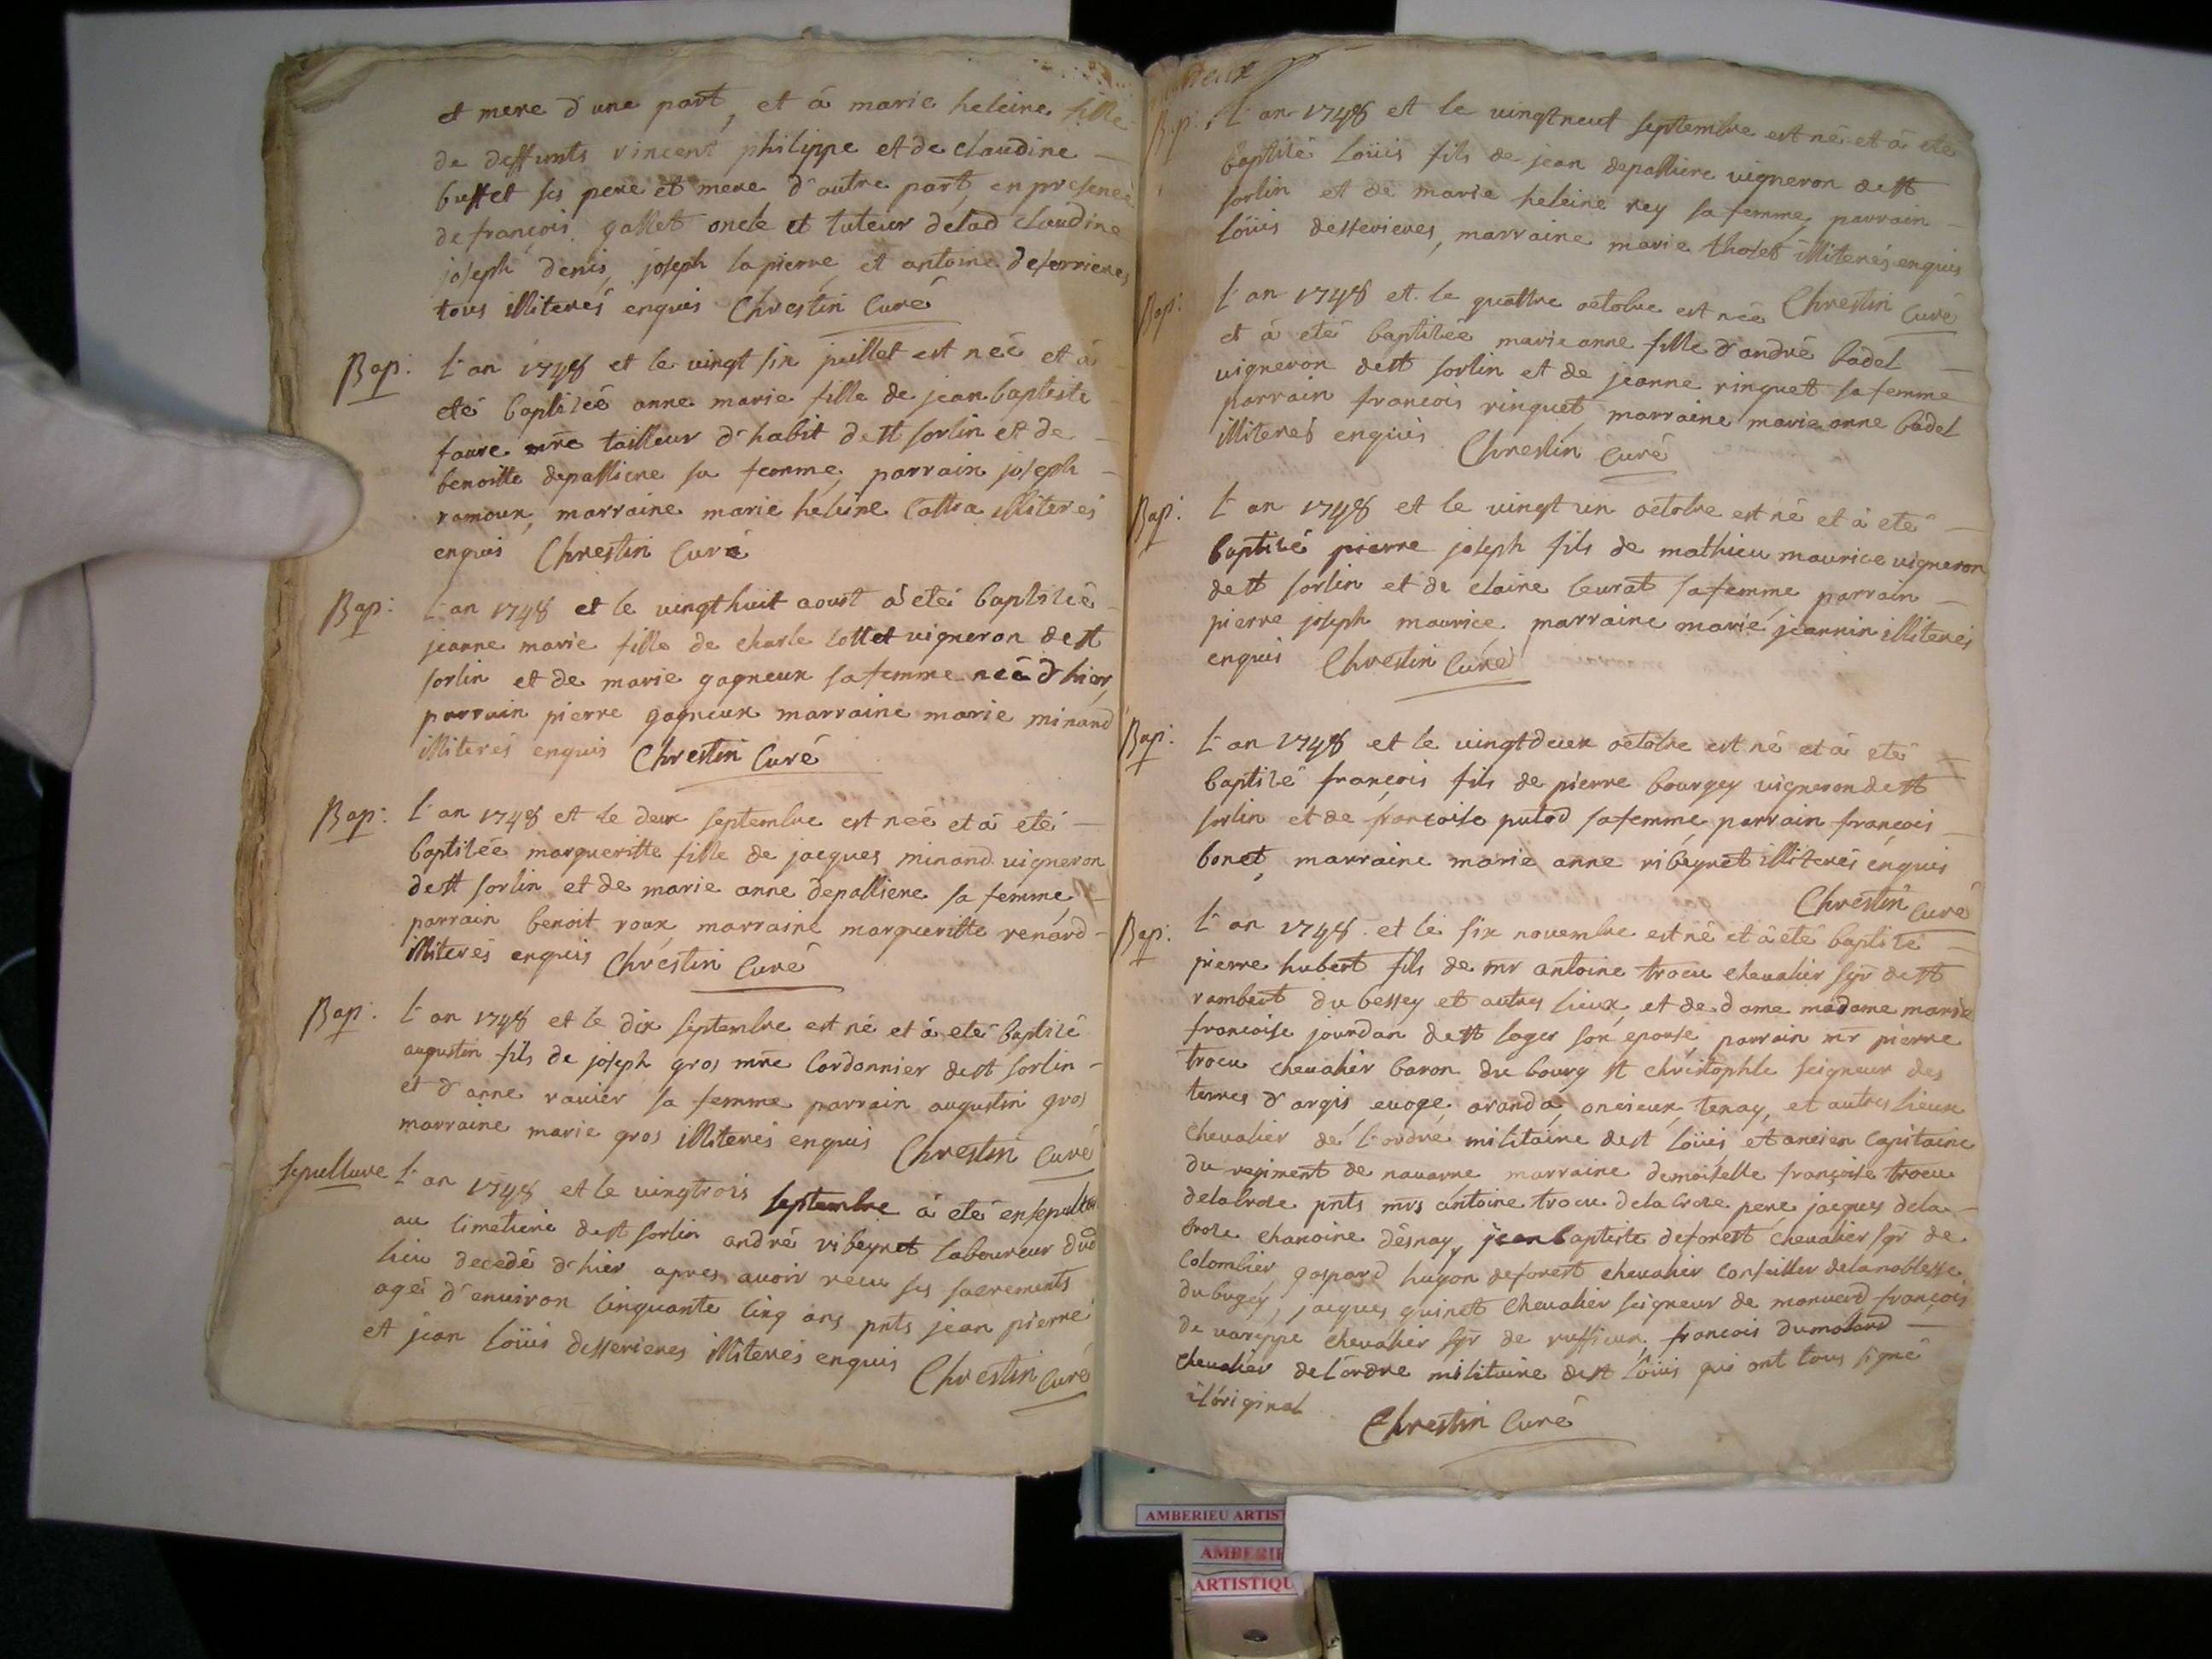 et mere d'une part, et á marie heleine fille
de deffunts vincent philippe et de claudine
buffet ses pere et mere d'autre part, en presence
de francois gallet oncle et tuteur de lad claudine
joseph denis, joseph lapierre, et antoine deserrieres
tous illiterés enquis Chrestin Curé
Bap: L'an 1748 et le vingt six juillet est neé et á
eté baptiseé anne marie fille de jean baptiste
faure mre tailleur d'habit de st sorlin et de
benoitte depalliere sa femme, parrain joseph
ramoux, marraine marie héleine illiterés
enquis Chrestin Curé
Bap: L'an 1748 et le vingthuit aoust á eté baptiseé
jeanne marie fille de charle lottet vigneron de st
sorlin et de marie gagneux sa femme neé d'hier,
parrain pierre gagneux marraine marie minand
illiterés enquis Chrestin Curé
Bap: L'an 1748 et le deux septembre est neé et á eté
baptisée margueritte fille de jacques minand vigneron
de st sorlin et de marie anne depalliere sa femme,
parrain benoit roux marraine margueritte renard
illiterés enquis Chrestin Curé
Bap: L'an 1748 et le dix septembre est né et á eté baptisé
augustin fils de joseph gros mre Cordonnier de st sorlin
et d'anne ravier sa femme parrain augustin gros
marraine marie gros illiterés enquis Chrestin Curé
sepulture L'an 1748 et le vingtrois septembre á eté
au Cimetiere de st sorlin andré ribeyret laboureur dud
lieu decedé d'hier apres avoir recu ses sacrements
agé d'environ Cinquante Cinq ans pnts jean pierre
et jean loüis desserieres illiterés enquis Chrestin Curé
Bap: L'an 1748 et le vingtneuf septembre est né et á eté
baptisé loüis fils de jean depalliere vigneron de st
sorlin et de marie heleine rey sa femme, parrain
loüis desserieres, marraine marie tholet illiterés enquis
Chrestin Curé
Bap: L'an 1748 et le quattre octobre est neé
et á eté baptiseé marie anne fille d'andré badel
vigneron de st sorlin et de jeanne ringuet sa femme
parrain francois ringuet, marraine marie anne badel
illiterés enquis Chrestin Curé
Bap: L'an 1748 et le vingt un octobre est né et á eté
baptisé pierre joseph fils de mathieu maurice vigneron
de st sorlin et de claire leurat sa femme parrain
pierre joseph maurice, marraine marie jeannin illiterés
enquis Chrestin Curé
Bap: L'an 1748 et le vingtdeux octobre est né et á eté
baptisé françois fils de pierre bourgey vigneron de st
sorlin et de francoise putod sa femme, parrain françois
bonet, marraine marie anne ribeyret illiterés enquis
Chrestin Curé
Bap: L'an 1748 et le six novembre est né et á eté baptisé
pierre hubert fils de mr antoine trocu chevalier sgr de st
rambert du bessey et autres lieux, et de dame madame marie
francoise jourdan de st lager son epouse, parrain mr pierre
trocu chevalier baron du bourg st christophle seigneur des
terres d'argis, evoge, aranda, oncieux, tenay, et autres lieux
chevalier de l'ordre militaire de st loüis, et ancien Capitaine
du regiment de navarre, marraine demoiselle françoise trocu
delacrose pnts mrs antoine trocu dela Crose pere jacques dela
Crose chanoine d'esnay, jean baptiste deforest chevalier sgr de
Colombier, gaspard hugon deforest chevalier Conseiller dela noblesse
du bugey, jacques guinet chevalier seigneur de monverd françois
de vareppe chevalier sgr de ruffieux, francois dumolard
chevalier de l'ordre militaire de st loüis qui ont tous signé
á l'original Chrestin Curé
AMBERIEU ARTIST
AMBERIE
ARTISTIQU